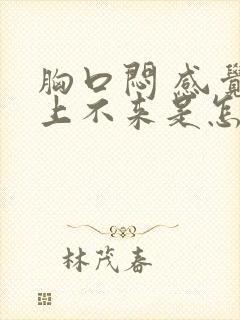 胸口悶 感覺
上不来是怎
林茂春